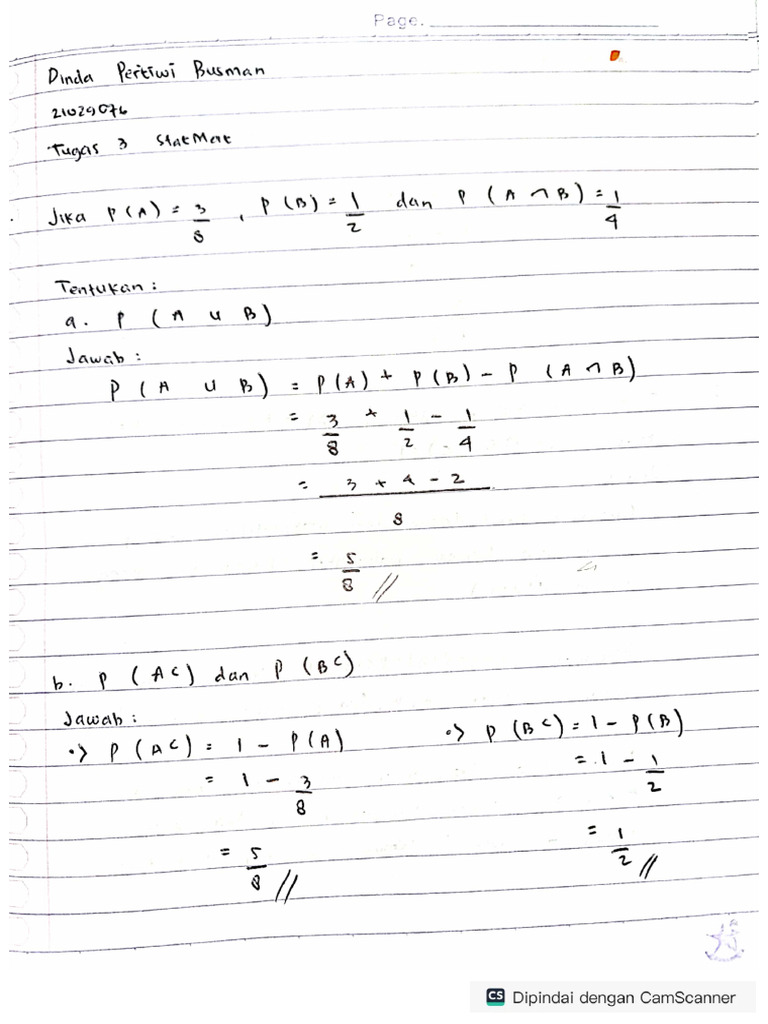 Page.
Dinda Pertiwi Busman
21029076
Tugas 3 StatMat
Jika P(A) = 3/8 , P(B) = 1/2 dan P (A ∩ B) = 1/4
Tentukan :
a. P (A ∪ B)
Jawab :
P (A ∪ B) = P(A) + P(B) - P (A ∩ B)
= 3/8 + 1/2 - 1/4
= 3 + 4 - 2 / 8
= 5/8 //
b. P (Aᶜ) dan P (Bᶜ)
Jawab :
•> P (Aᶜ) = 1 - P(A)
= 1 - 3/8
= 5/8 //
•> P (Bᶜ) = 1 - P(B)
= 1 - 1/2
= 1/2 //
CS Dipindai dengan CamScanner